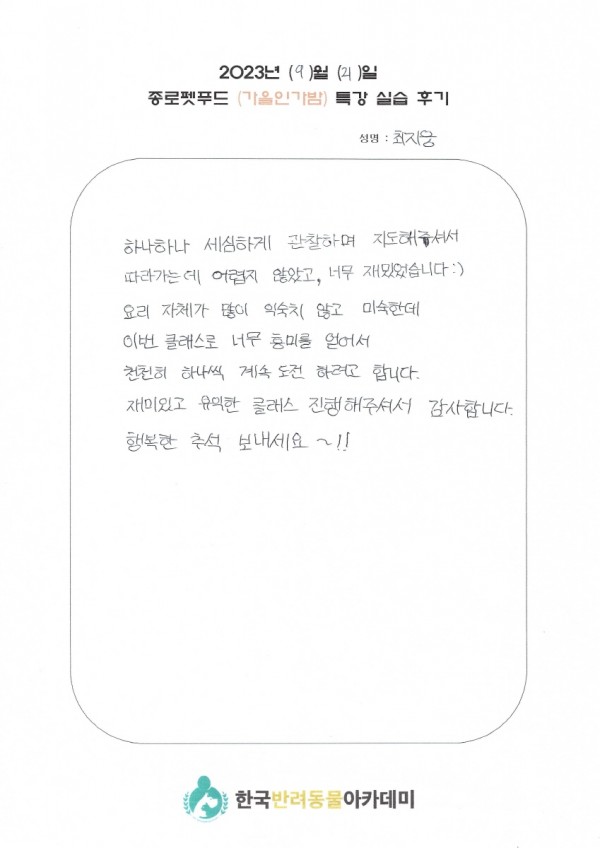 2023년 (9)월 (21)일
종로펫푸드 (가을인가밤) 특강 실습 후기
성명 : 최지웅
하나하나 세심하게 관찰하며 지도해주셔서
따라가는데 어렵지 않았고, 너무 재밌었습니다 :)
요리 자체가 많이 익숙치 않고 미숙한데
이번 클래스로 너무 흥미를 얻어서
천천히 하나씩 계속 도전 하려고 합니다.
재미있고 유익한 클래스 진행해주셔서 감사합니다.
행복한 추석 보내세요 ~!!
한국반려동물아카데미